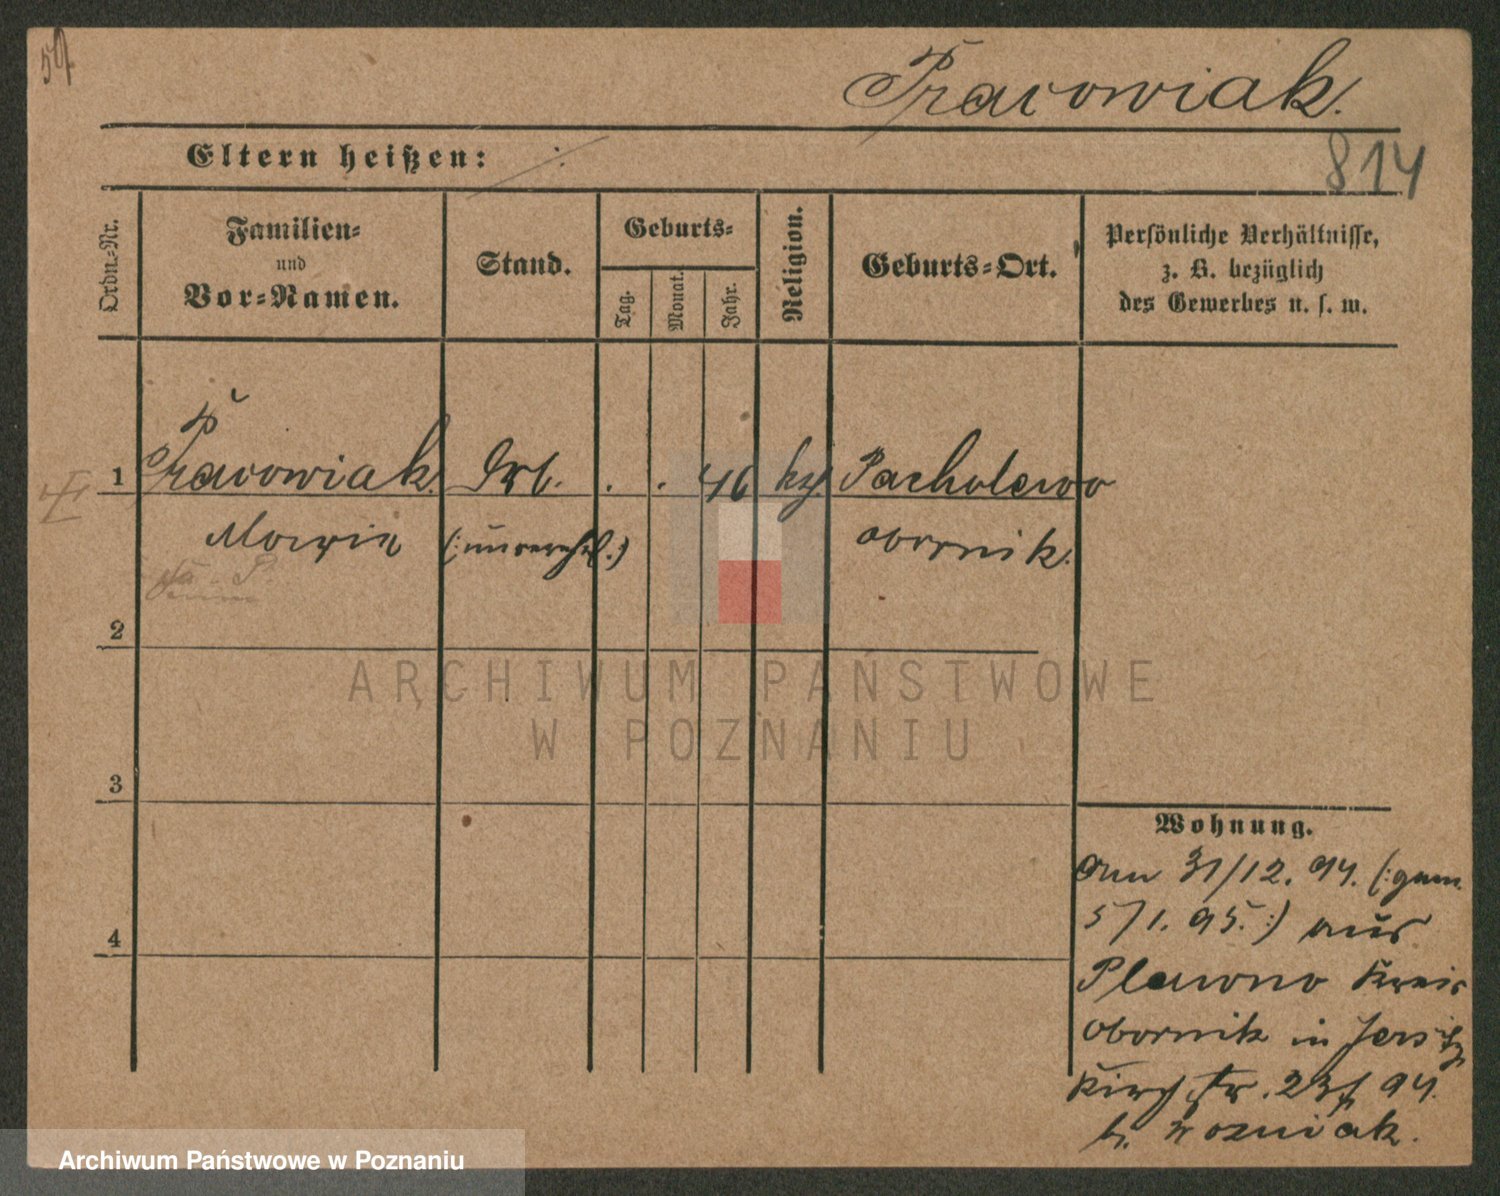 Pracowiak.
Eltern heißen:
814
Ordn.-Nr.
Familien-
und
Vor-Namen.
Stand.
Geburts-
Tag.
Monat.
Jahr.
Religion.
Geburts-Ort.
Persönliche Verhältnisse,
z. B. bezüglich
des Gewerbes u. s. w.
1 Pracowiak Arb. . . 46 kg. Pacholewo
Maria (:unverehel.:) Obornik.
2
3
4
Wohnung.
Am 31/12. 94. (:gem.
5/1. 95.:) aus
Plawno Kreis
Obornik in Jersitz
Kirchstr. 23
b. Wozniak.
ARCHIWUM PAŃSTWOWE
W POZNANIU
Archiwum Państwowe w Poznaniu